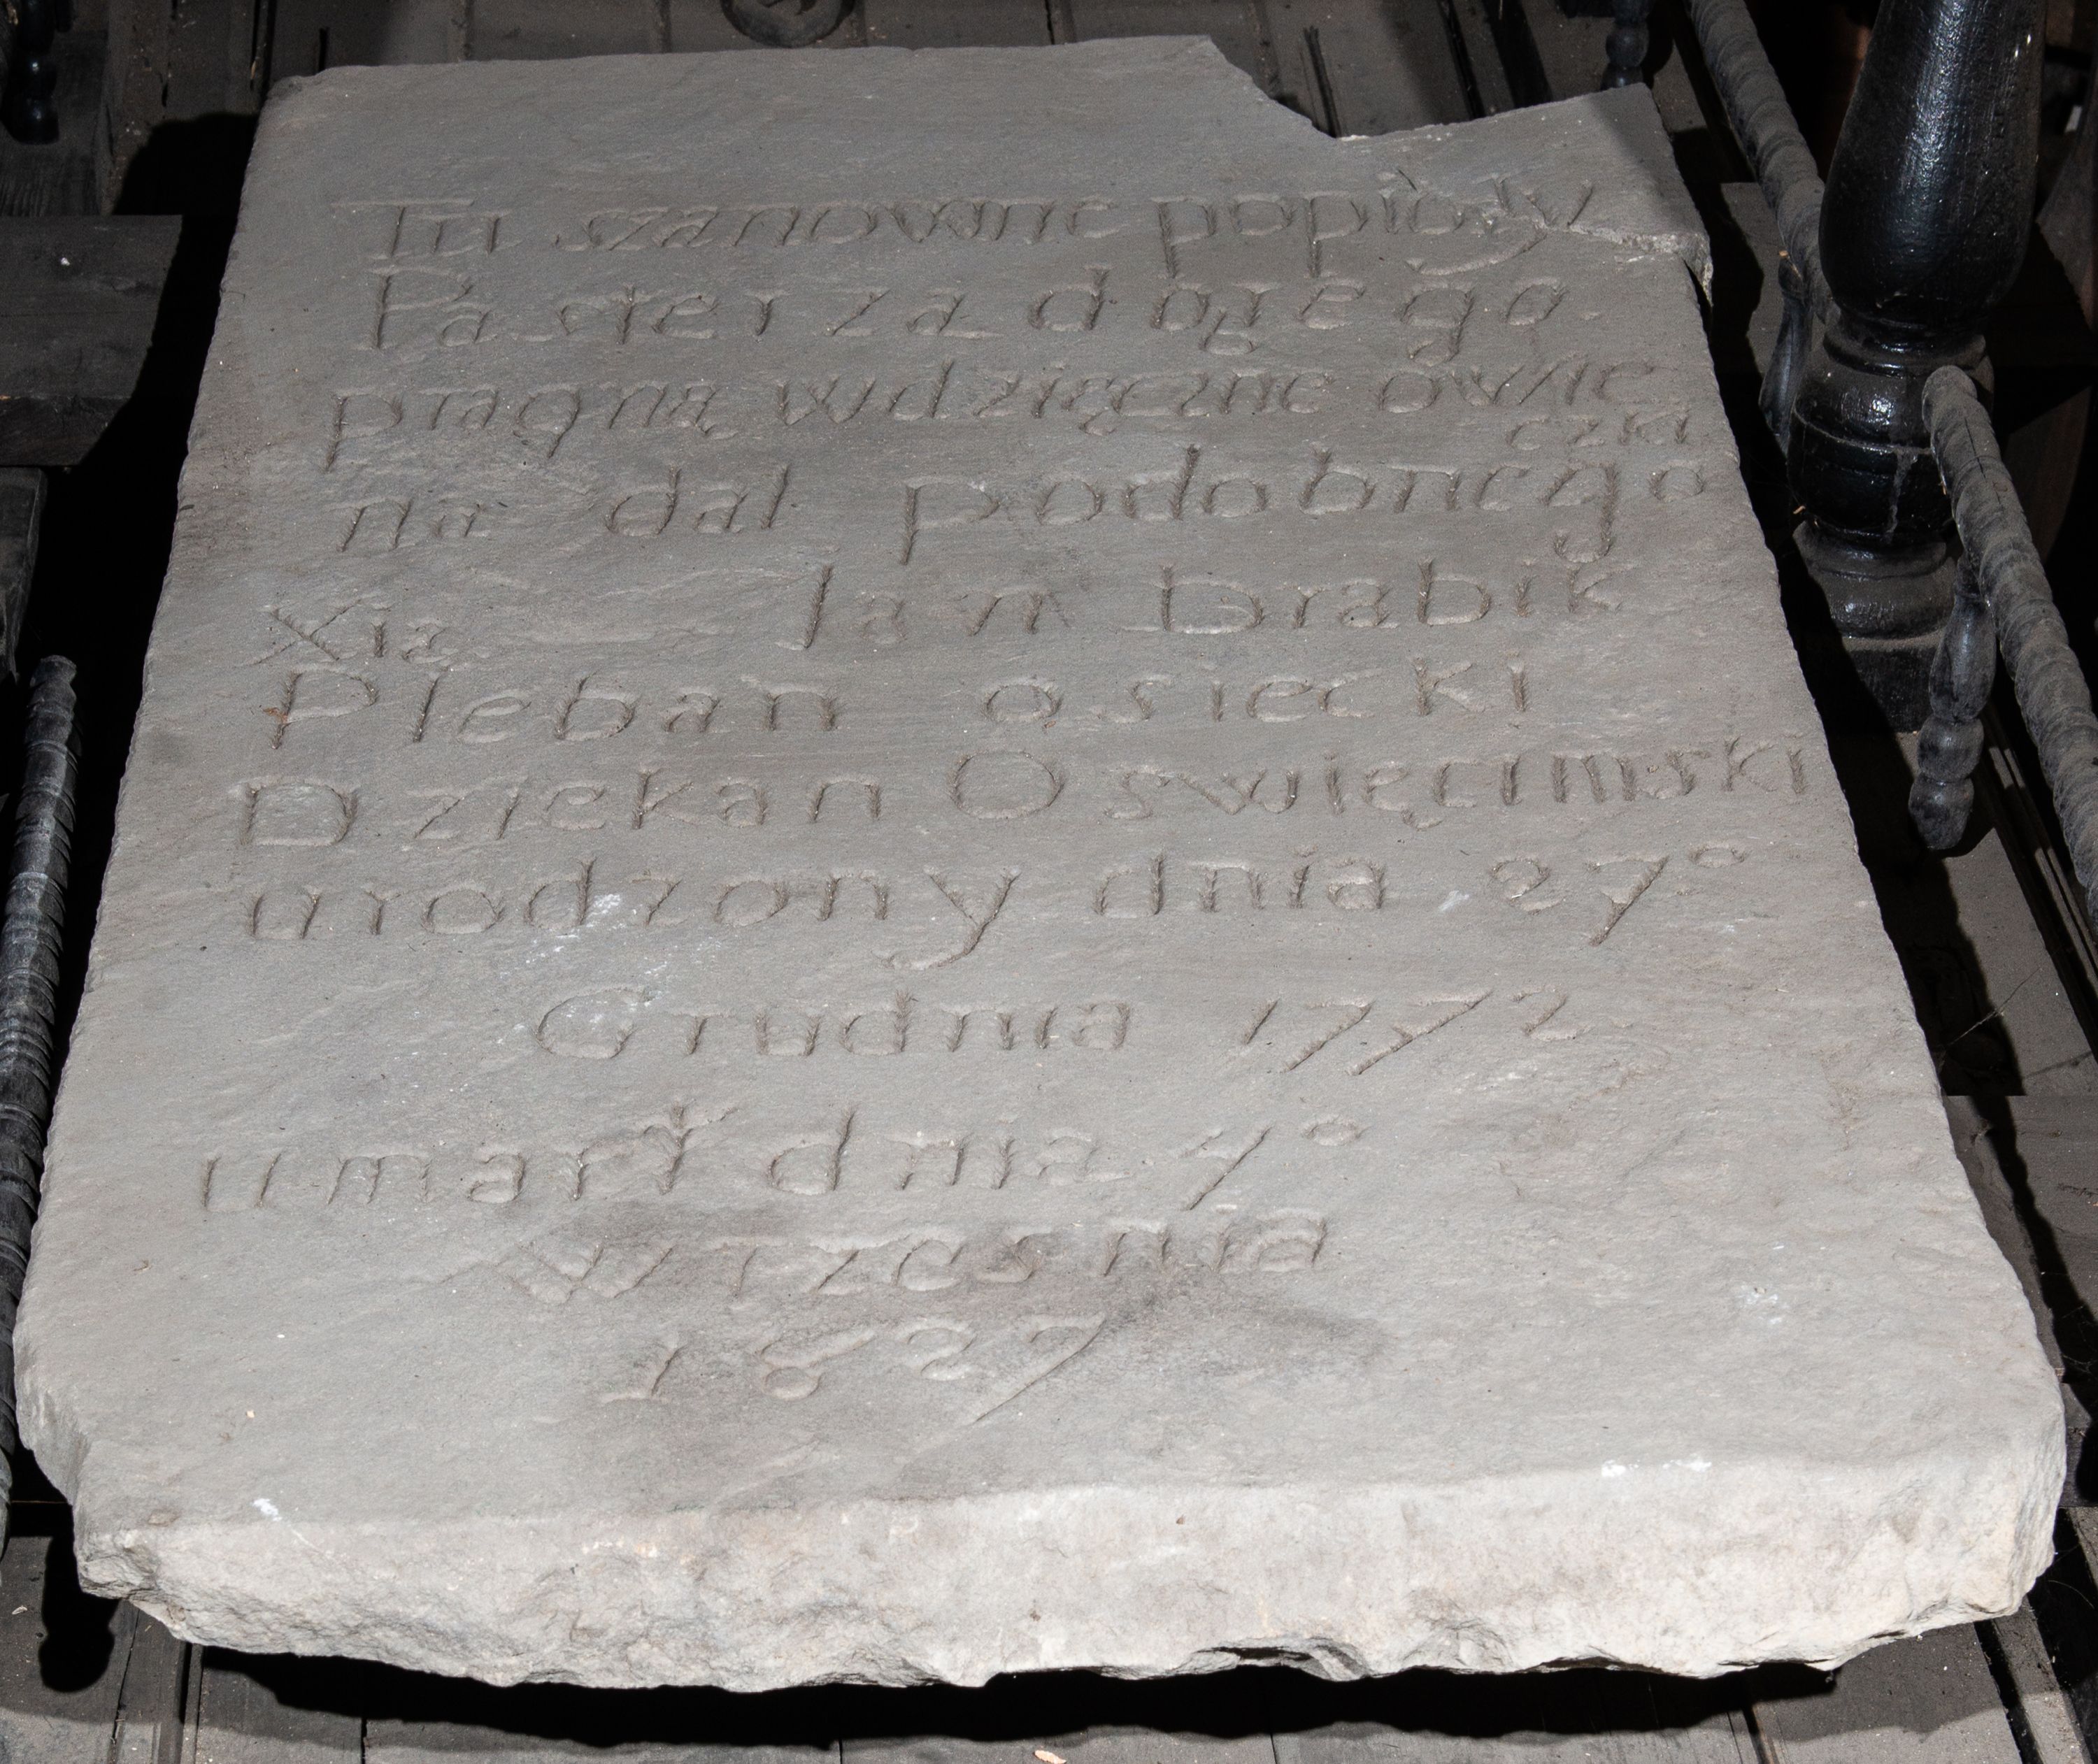 Tu szanowne popioły
Pasterza drogiego.
pragną wdzięczne owie
czki
na dal podobnego
Xią Jan Grabik
Pleban osiecki
Dziekan Oswięcimski
urodzony dnia 27°
Grudnia 1772
umarł dnia 1°
Wrzesnia
1827